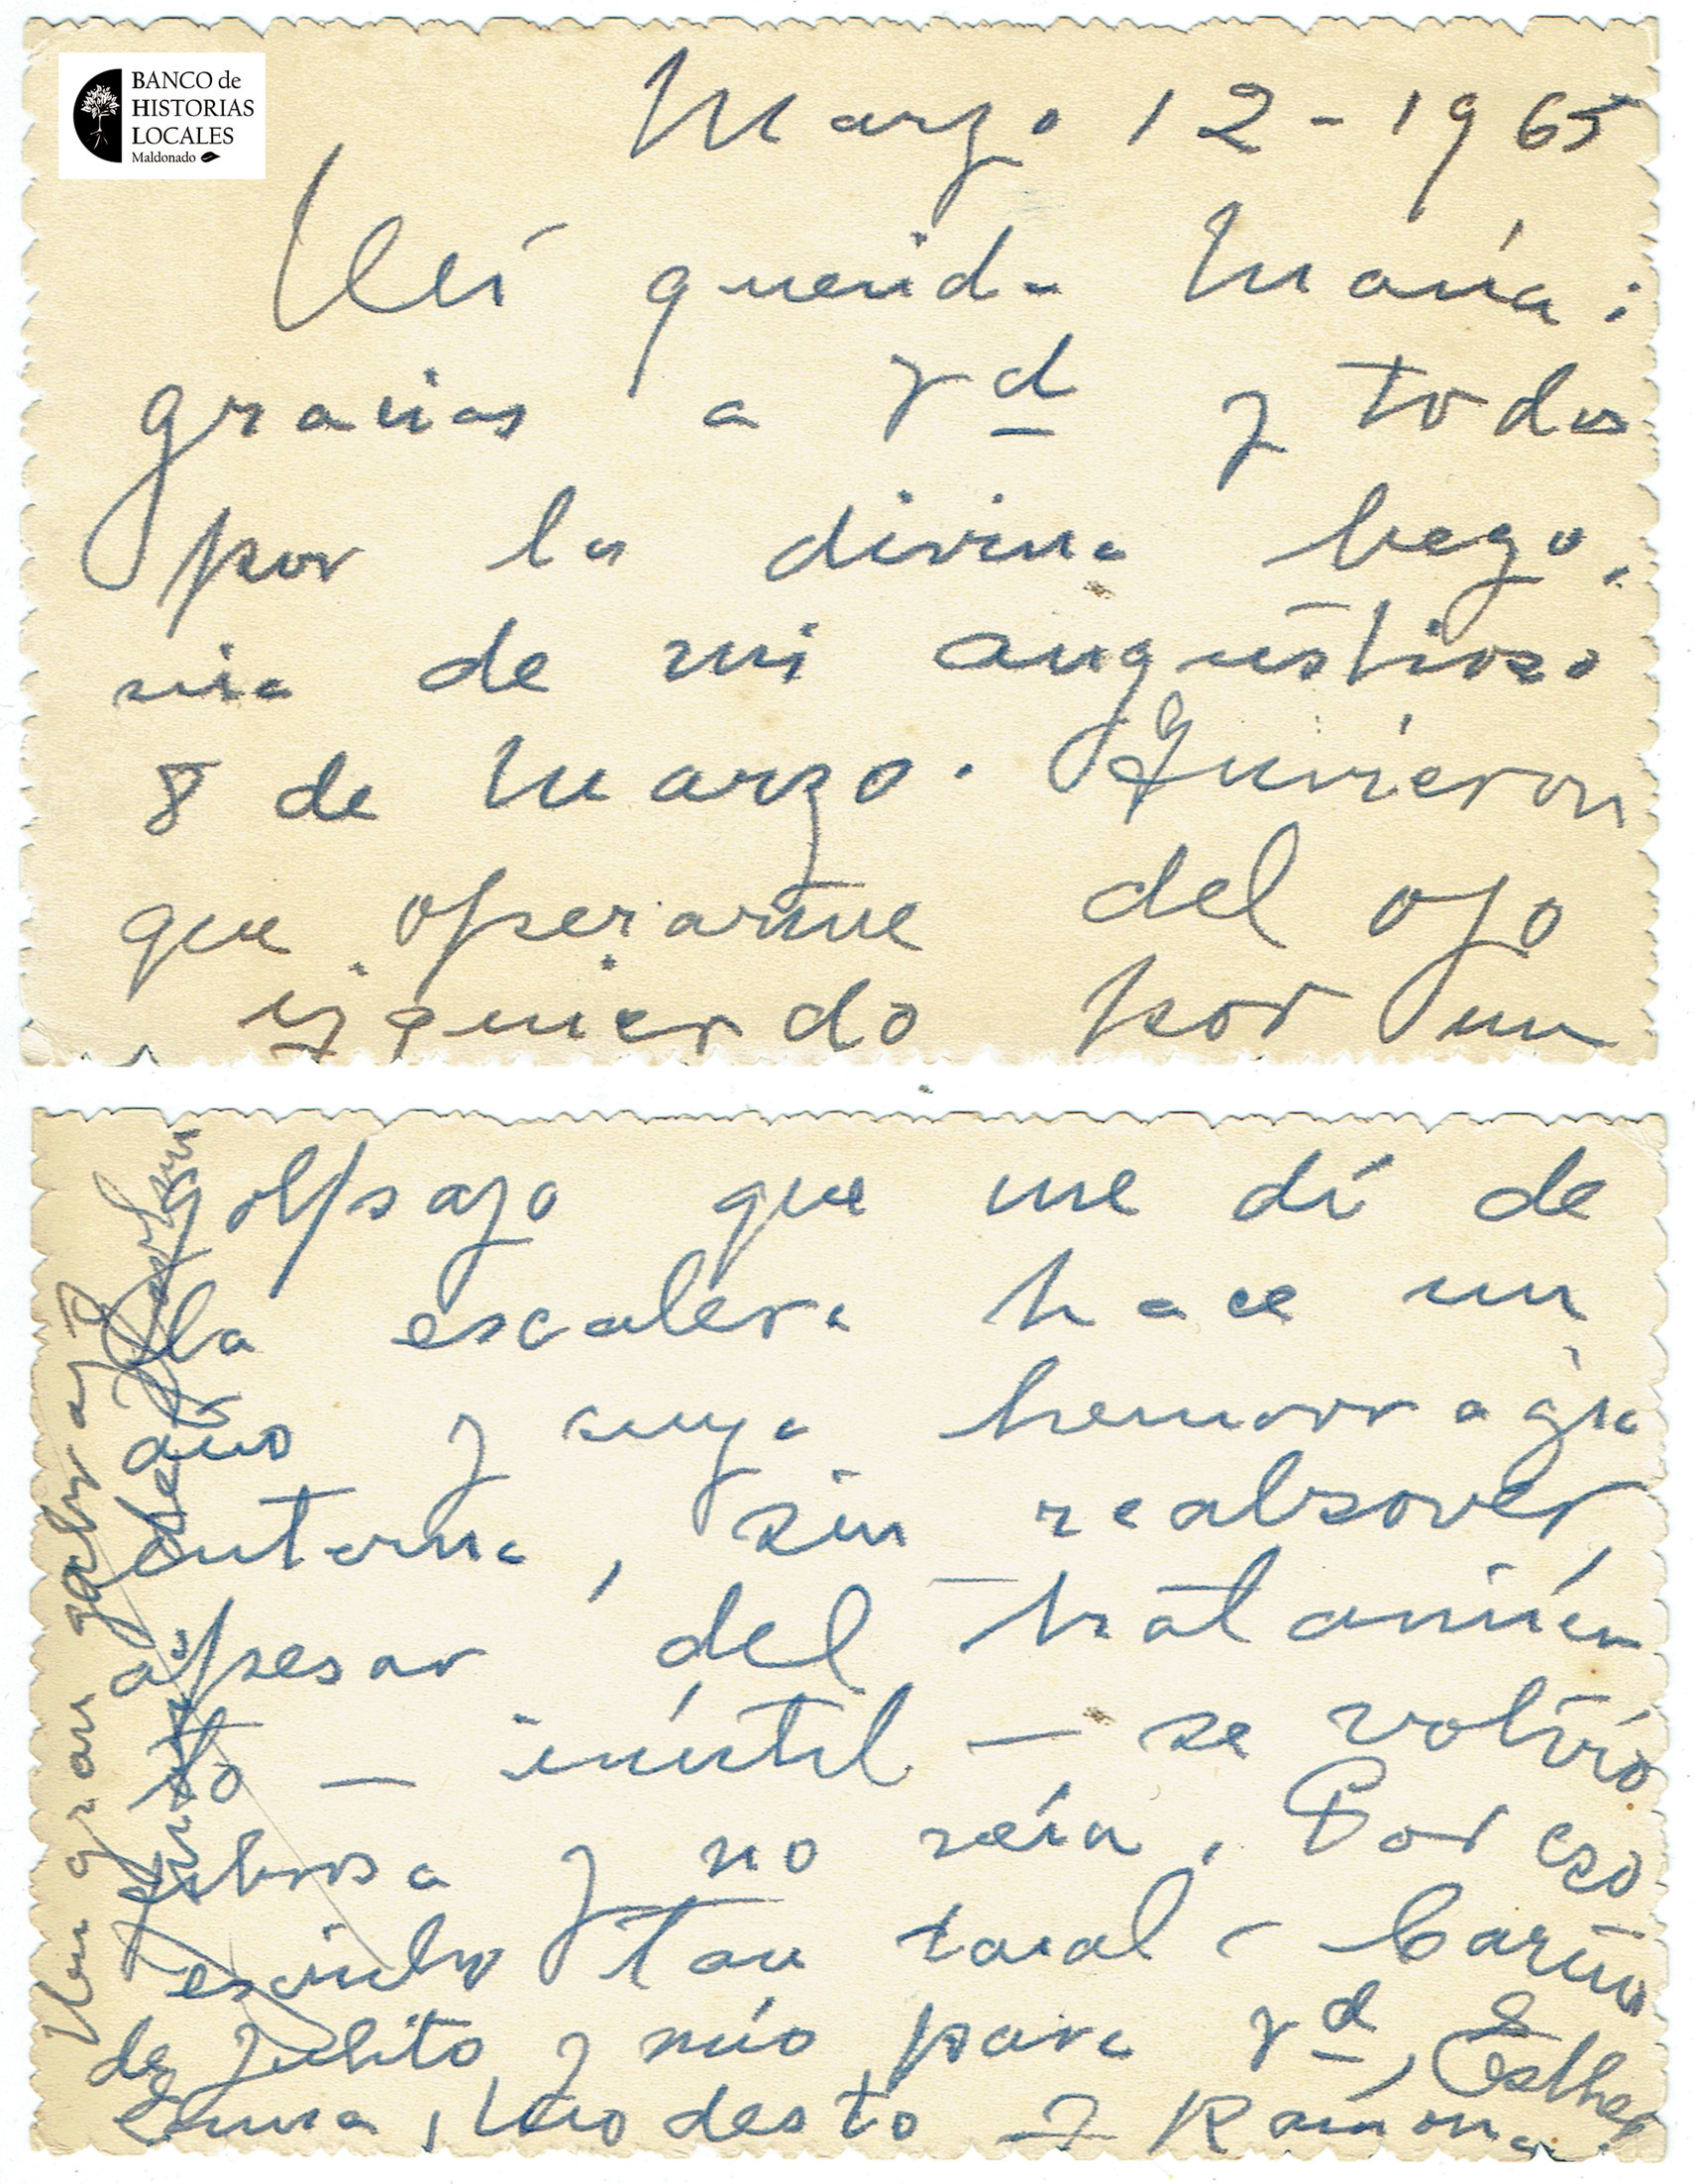 BANCO de
HISTORIAS
LOCALES
Maldonado
Marzo 12-1965
Mi querida María:
gracias a Vd y todos
por la divina bego,
nia de mi angustioso
8 de Marzo. Tuvieron
que operarme del ojo
izquierdo por un
golpazo que me dí de
la escalera hace un
año y cuya hemorragia
interna, sin reabsorver
apesar del tratamien
to — inútil — se volvió
fibrosa y no veía. Por eso
escribo tan tal mal - Cariños
de Julito y mío para Vd, Esther
Emma, Modesto y Ramona.
Un gran abrazo
de